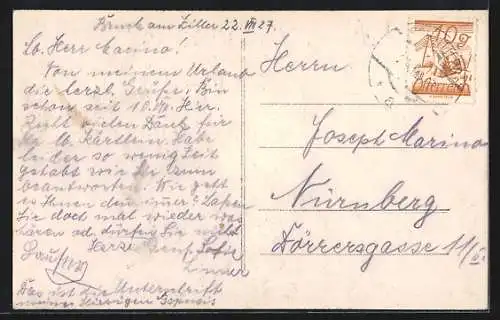 Bruck am Ziller 22. VIII 27.
Lb. Herr Marino!
Von meinem Urlaub
die herzl. Grüße. Bin
schon seit 18. hier.
Recht vielen Dank für
Ihr lb. Kärtlein. Habe
leider so wenig Zeit
gehabt wie Ihr zum
beantworten. Wie geht
es Ihnen den immer? Laßen
Sie doch mal wieder was
hören od. dürfen Sie nicht
Herzl. Sofie
Das ist die Unterschrift
meines hiesigen
Herrn
Joseph Marino
Nürnberg
Dörrersgasse 11/
10g